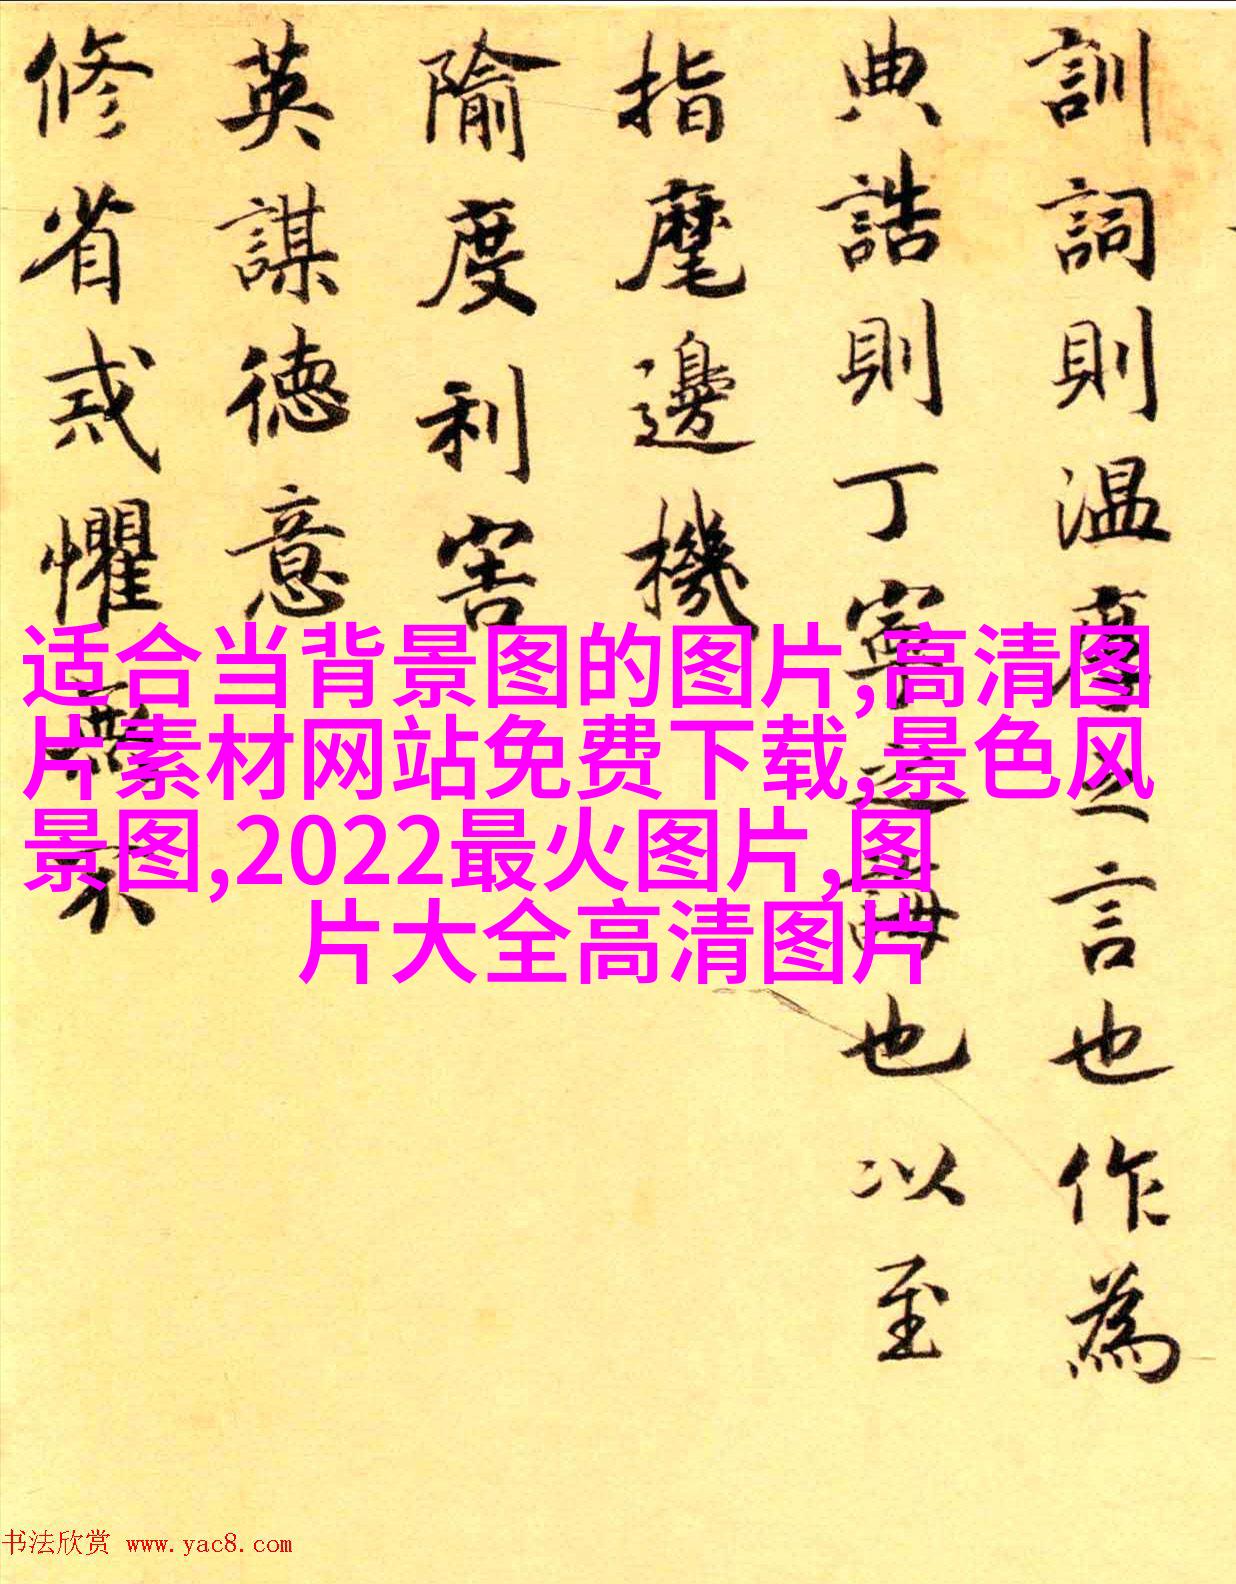 訓詞則温厚之言也作為
典誥則丁寧之誨也以至
指麾邊機
隃度利害
英謀徳意
修省戒懼無不
适合当背景图的图片,高清图
片素材网站免费下载,景色风
景图,2022最火图片,图
片大全高清图片
书法欣赏 www.yac8.com